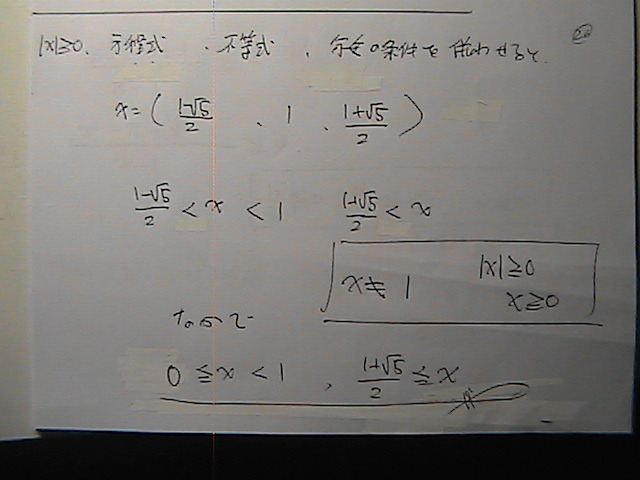 |x|≧0、方程式、不等式、分母の条件を併わせると、
x = ( (1-√5)/2 、 1 、 (1+√5)/2 )
(1-√5)/2 < x < 1  (1+√5)/2 < x
x ≠ 1  |x|≧0
x≧0
なので
0 ≦ x < 1 , (1+√5)/2 ≦ x